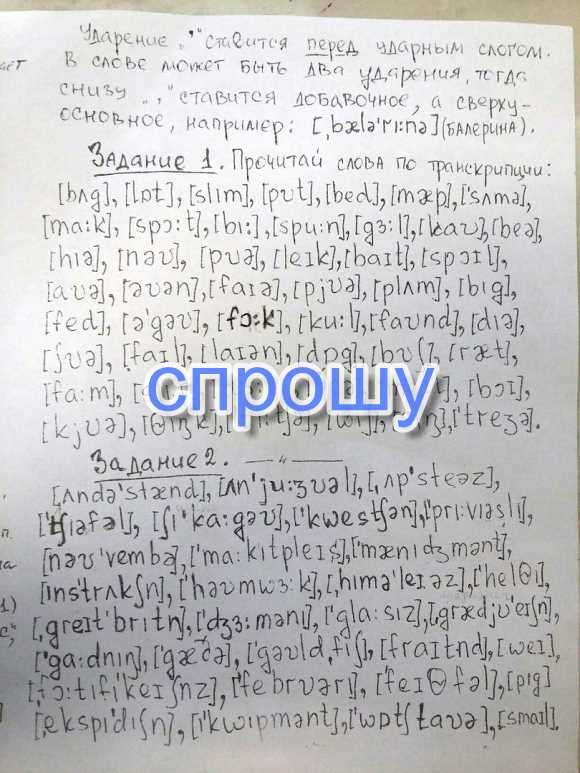 Ударение „'" ставится перед ударным слогом.
В слове может быть два ударения, тогда
снизу „ˌ" ставится добавочное, а сверху-
основное, например: [ˌbælə'ri:nə] (БАЛЕРИНА).
Задание 1. Прочитай слова по транскрипции:
[bʌg], [lɒt], [slım], [pʊt], [bed], [mæp], ['sʌmə],
[ma:k], [spɔ:t], [bı:], [spu:n], [gɜ:l], [kaʊ], [beə],
[hıə], [nəʊ], [pʊə], [leık], [baıt], [spɔıl],
[aʊə], [əʊən], [faıə], [pjʊə], [plʌm], [bıg],
[fed], [ə'gəʊ], [fɔ:k], [ku:l], [faʊnd], [dıə],
[ʃʊə], [faıl], [laıən], [dɒg], [bʊʃ], [ræt],
[fa:m], [bɔı],
спрошу
[kjʊə], [Ɵıŋk], ['treʒə].
Задание 2. —〃—
[ʌndə'stænd], [ʌn'ju:ʒʊəl], [ˌʌp'steəz],
['tʃıəfəl], [ʃı'ka:gəʊ], ['kwestʃən], ['pri:vıəslı],
[nəʊ'vembə], ['ma:kıtpleıs], ['mænıdʒmənt],
[ıns'trʌkʃn], ['həʊmwɜ:k], [ˌhımə'leıəz], ['helƟı],
[ˌgreıt'brıtn], ['dʒɜ:mənı], ['gla:sız], [ˌgrædjʊ'eıʃn],
['ga:dnıŋ], ['gæðə], ['gəʊldˌfıʃ], [fraıtnd], [weı],
[ˌfɔ:tıfı'keıʃnz], ['febrʊərı], ['feıƟfəl], [pıg]
[ˌekspı'dıʃn], [ı'kwıpmənt], ['wɒtʃtaʊə], [smaıl].